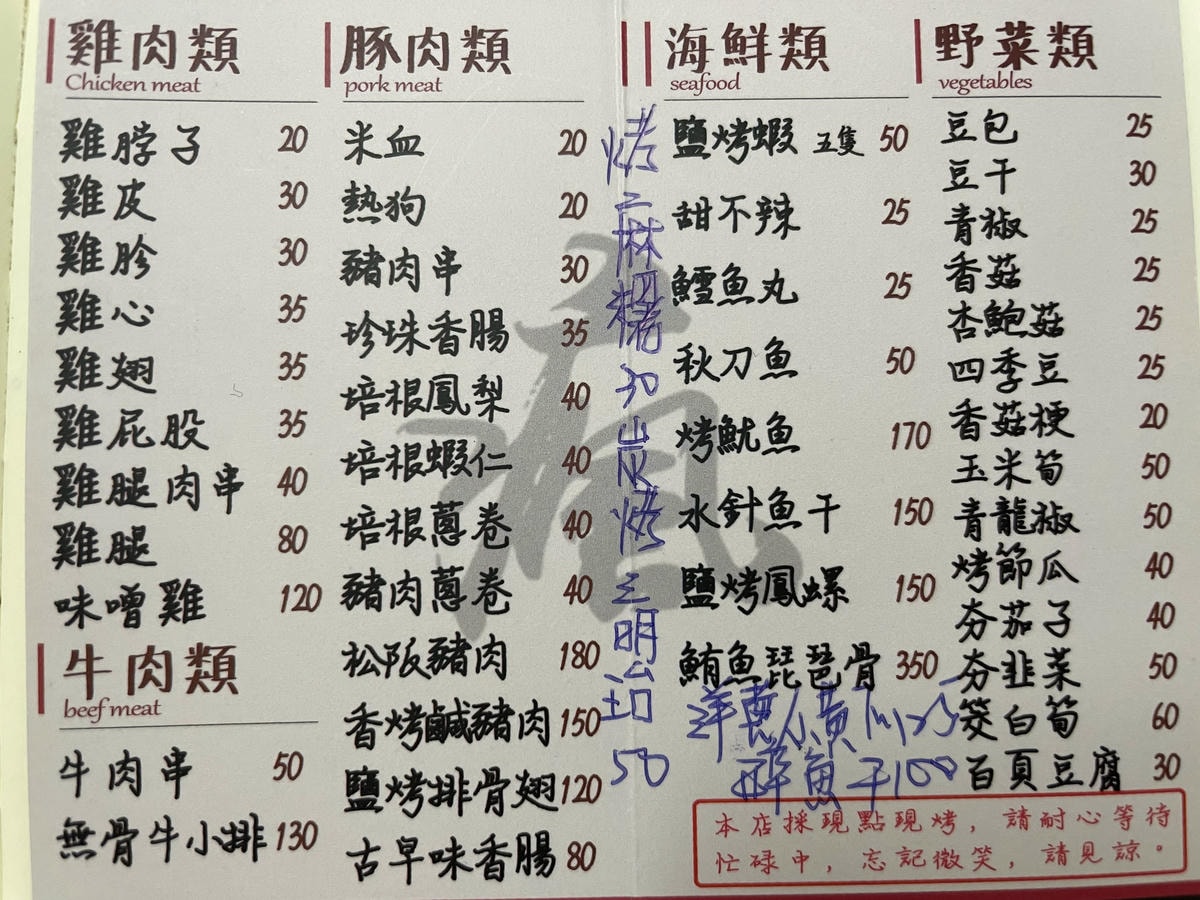 雞肉類
Chicken meat
雞脖子 20
雞皮 30
雞胗 30
雞心 35
雞翅 35
雞屁股 35
雞腿肉串 40
雞腿 80
味噌雞 120
牛肉類
beef meat
牛肉串 50
無骨牛小排 130
豚肉類
pork meat
米血 20
熱狗 20
豬肉串 30
珍珠香腸 35
培根鳳梨 40
培根蝦仁 40
培根蔥卷 40
豬肉蔥卷 40
松阪豬肉 180
香烤鹹豬肉 150
鹽烤排骨翅 120
古早味香腸 80
烤 麻糬 30 炭烤三明治 50
海鮮類
seafood
鹽烤蝦 五隻 50
甜不辣 25
鱈魚丸 25
秋刀魚 50
烤魷魚 170
水針魚干 150
鹽烤鳳螺 150
鮪魚琵琶骨 350
小黃瓜 25
魚干 100
野菜類
vegetables
豆包 25
豆干 30
青椒 25
香菇 25
杏鮑菇 25
四季豆 25
香菇梗 20
玉米筍 50
青龍椒 50
烤節瓜 40
夯茄子 40
夯韭菜 50
筊白筍 60
百頁豆腐 30
本店採現點現烤，請耐心等待
忙碌中，忘記微笑，請見諒。